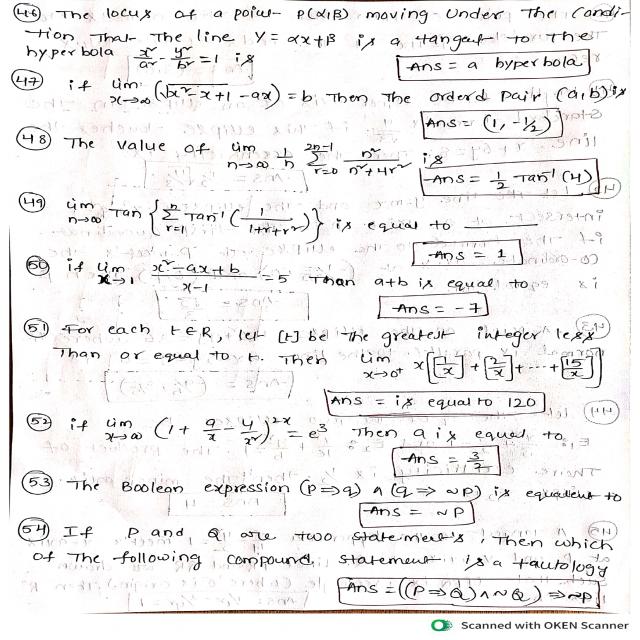 46 The locus of a point P(α,β) moving under the condi-
-tion that the line y = αx+β is a tangent to the
hyperbola x²/a² - y²/b² = 1 is
Ans = a hyperbola
47 if lim x→∞ (√x²-x+1 -ax) = b. Then the orderd pair (a,b) is
Ans = (1, -1/2)
48 The value of lim n→∞ 1/n ∑ r=0 2n-1 n²/n²+4r² is
Ans = 1/2 Tan⁻¹(4)
49 lim n→∞ Tan { ∑ r=1 n Tan⁻¹ (1/1+r+r²) } is equal to ______
Ans = 1
50 if lim x→1 x²-ax+b/x-1 = 5 Than a+b is equal to
Ans = -7
51 For each t∈R, let [t] be the greatest integer less
Than or equal to t. Then lim x→0⁺ x[[1/x]+[2/x]+...+[15/x]]
Ans = is equal to 120
52 if lim x→∞ (1 + a/x - 4/x²)^2x = e³ Then a is equal to
Ans = 3/2
53 The Boolean expression (p⇒q) ∧ (q⇒ ~p) is equalent to
Ans = ~P
54 If P and Q are two statement's, Then which
of The following compound statement is a tautology
Ans = ((P⇒Q)∧~Q) ⇒~P
Scanned with OKEN Scanner